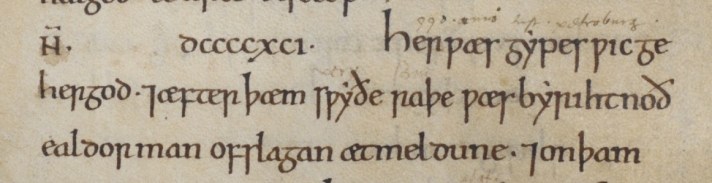 N̄. DCCCCXCI. Her ƿæs gẏpesƿic ge
hergod · ⁊æfter þæm sƿẏðe raþe ƿæs bẏrihtnoð
ealdorman ofslagan ætmeldune · ⁊on þam